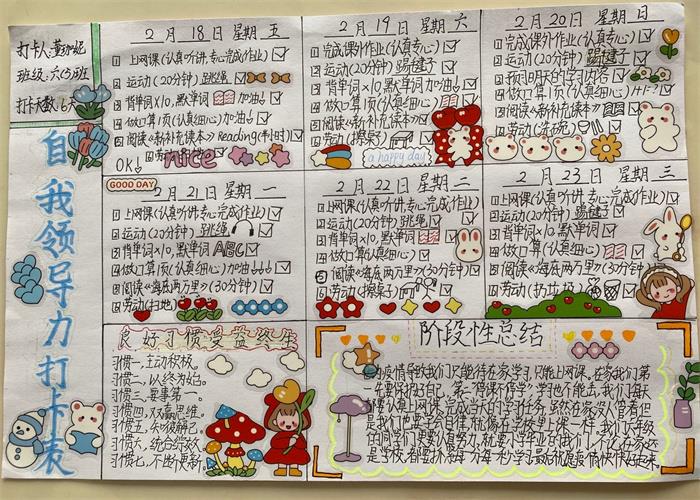 打卡人:董珈妮
班级:六(5)班
打卡天数:6天
自我领导力打卡表
2月18日 星期五
1 上网课(认真听讲,专心完成作业)
2 运动(20分钟)跳绳
3 背单词x10,默单词 加油
4 做口算1页(认真细心)加油
5 阅读《新补充读本》Reading(半小时)
nice
OK
2月19日 星期六
1 完成课外作业(认真专心)
2 运动(20分钟)踢毽子
3 背单词x10,默单词 加油
4 做口算1页(认真细心)
5 阅读《新补充读本》
6 劳动(擦桌子)
a happy day
2月20日 星期日
1 完成课外作业(认真专心)
2 运动(20分钟)踢毽子
3 预习明天的学习内容
4 做口算1页(认真细心)
5 阅读《新补充读本》
6 劳动(洗碗)
GOOD DAY
2月21日 星期一
1 上网课(认真听讲,专心完成作业)
2 运动(20分钟)跳绳
3 背单词x10,默单词 ABC
4 做口算1页(认真细心)加油
5 阅读《海底两万里》(30分钟)
6 劳动(扫地)
2月22日 星期二
1 上网课(认真听讲,专心完成作业)
2 运动(20分钟)跳绳
3 背单词x10,默单词
4 做口算1页(认真细心)
5 阅读《海底两万里》(30分钟)
6 劳动(擦桌子)
2月23日 星期三
1 上网课(认真听讲,专心完成作业)
2 运动(20分钟)踢毽子
3 背单词x10,默单词
4 做口算1页(认真细心)
5 阅读《海底两万里》(30分钟)
6 劳动(扔垃圾)
良好习惯受益终生
习惯一,主动积极。
习惯二,以终为始。
习惯三,要事第一。
习惯四,双赢思维。
习惯五,知彼解己。
习惯六,统合综效
习惯七,不断更新
阶段性总结
因疫情导致我们只能待在家学习,只能上网课,在家我们第一
先要保护好自己,第二"停课不停学"学习也不能丢,我们每天
都要认真上网课,完成当天的学习任务,虽然在家没人管着但
是我们也要学会自律,就像在学校里上课一样,我们六年级
的同学们更要认真努力,就要小学毕业的我们,不仅在家还
是学校,都要抓紧每分每秒学习,最后就是疫情快快好起来。